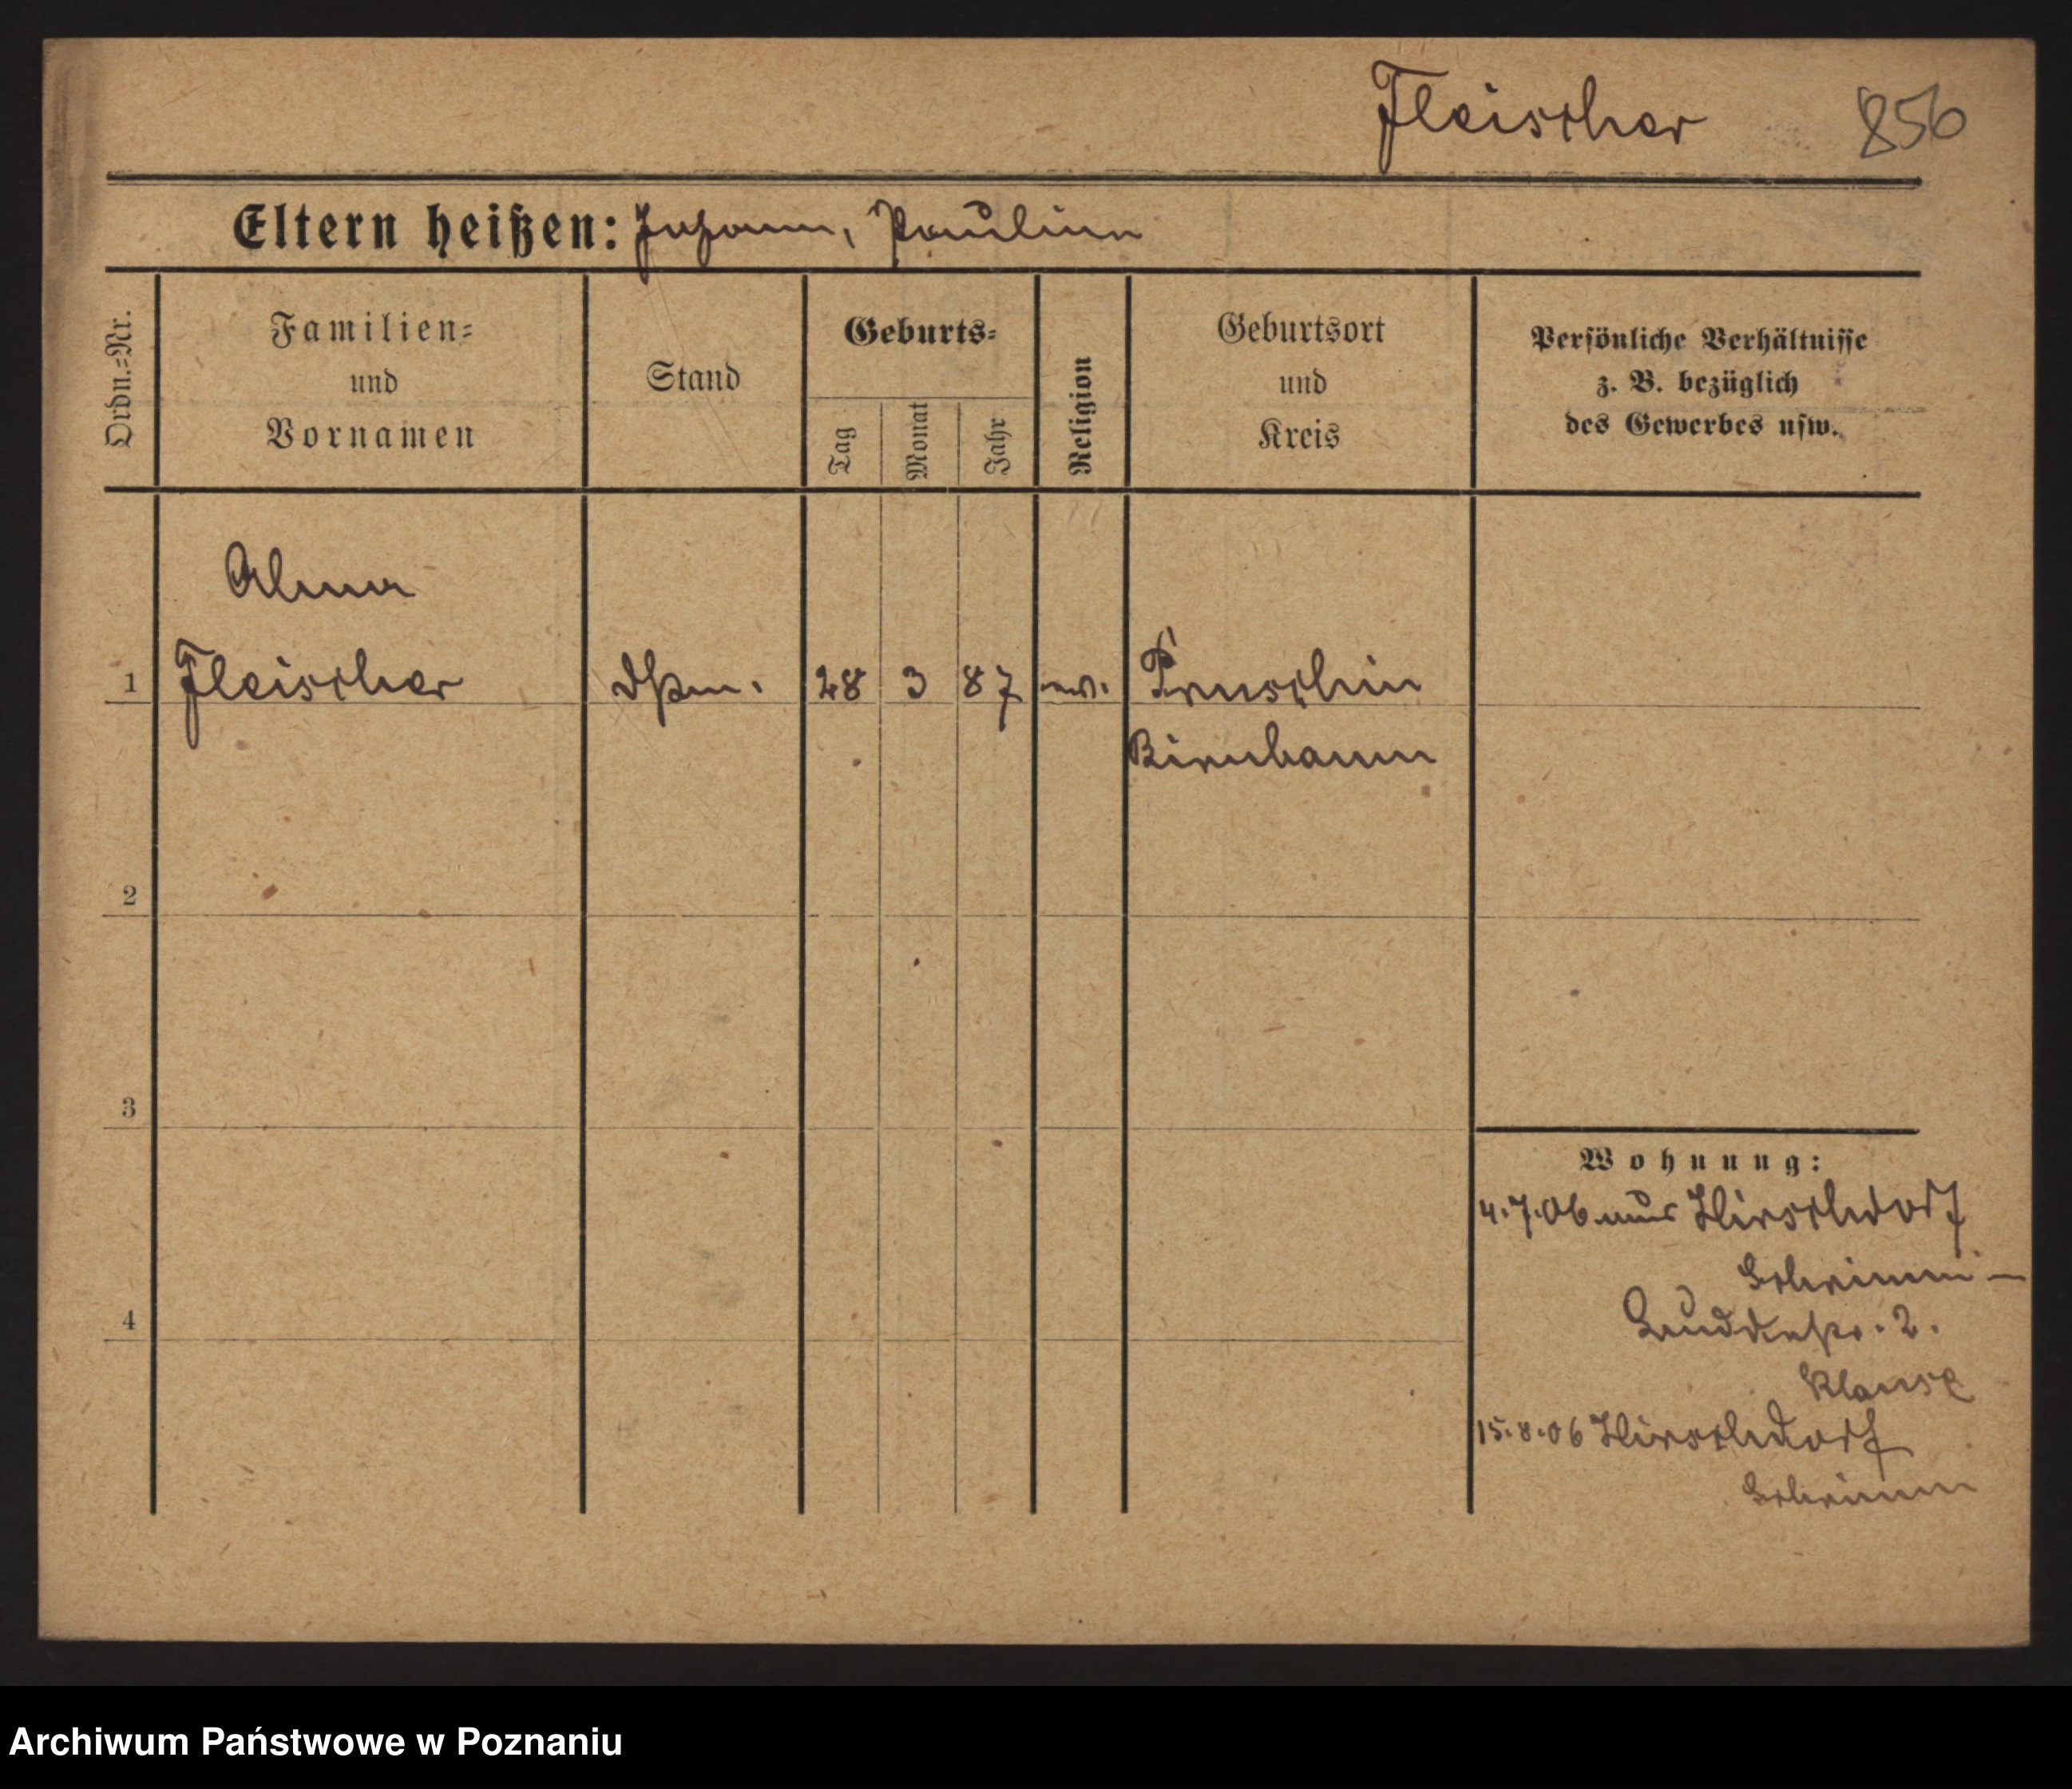 Fleischer 856
Eltern heißen: Johann, Pauline
Ordn.-Nr.
Familien-
und
Vornamen
Stand
Geburts-
Tag
Monat
Jahr
Religion
Geburtsort
und
Kreis
Persönliche Verhältnisse
z. B. bezüglich
des Gewerbes usw.
Alma
1 Fleischer 28 3 87 ev. Pruschin
Birnbaum
2
3
4
Wohnung:
4.7.06 aus Hirschdorf
Schrimm
2.
15.8.06 Hirschdorf
Schrimm
Archiwum Państwowe w Poznaniu